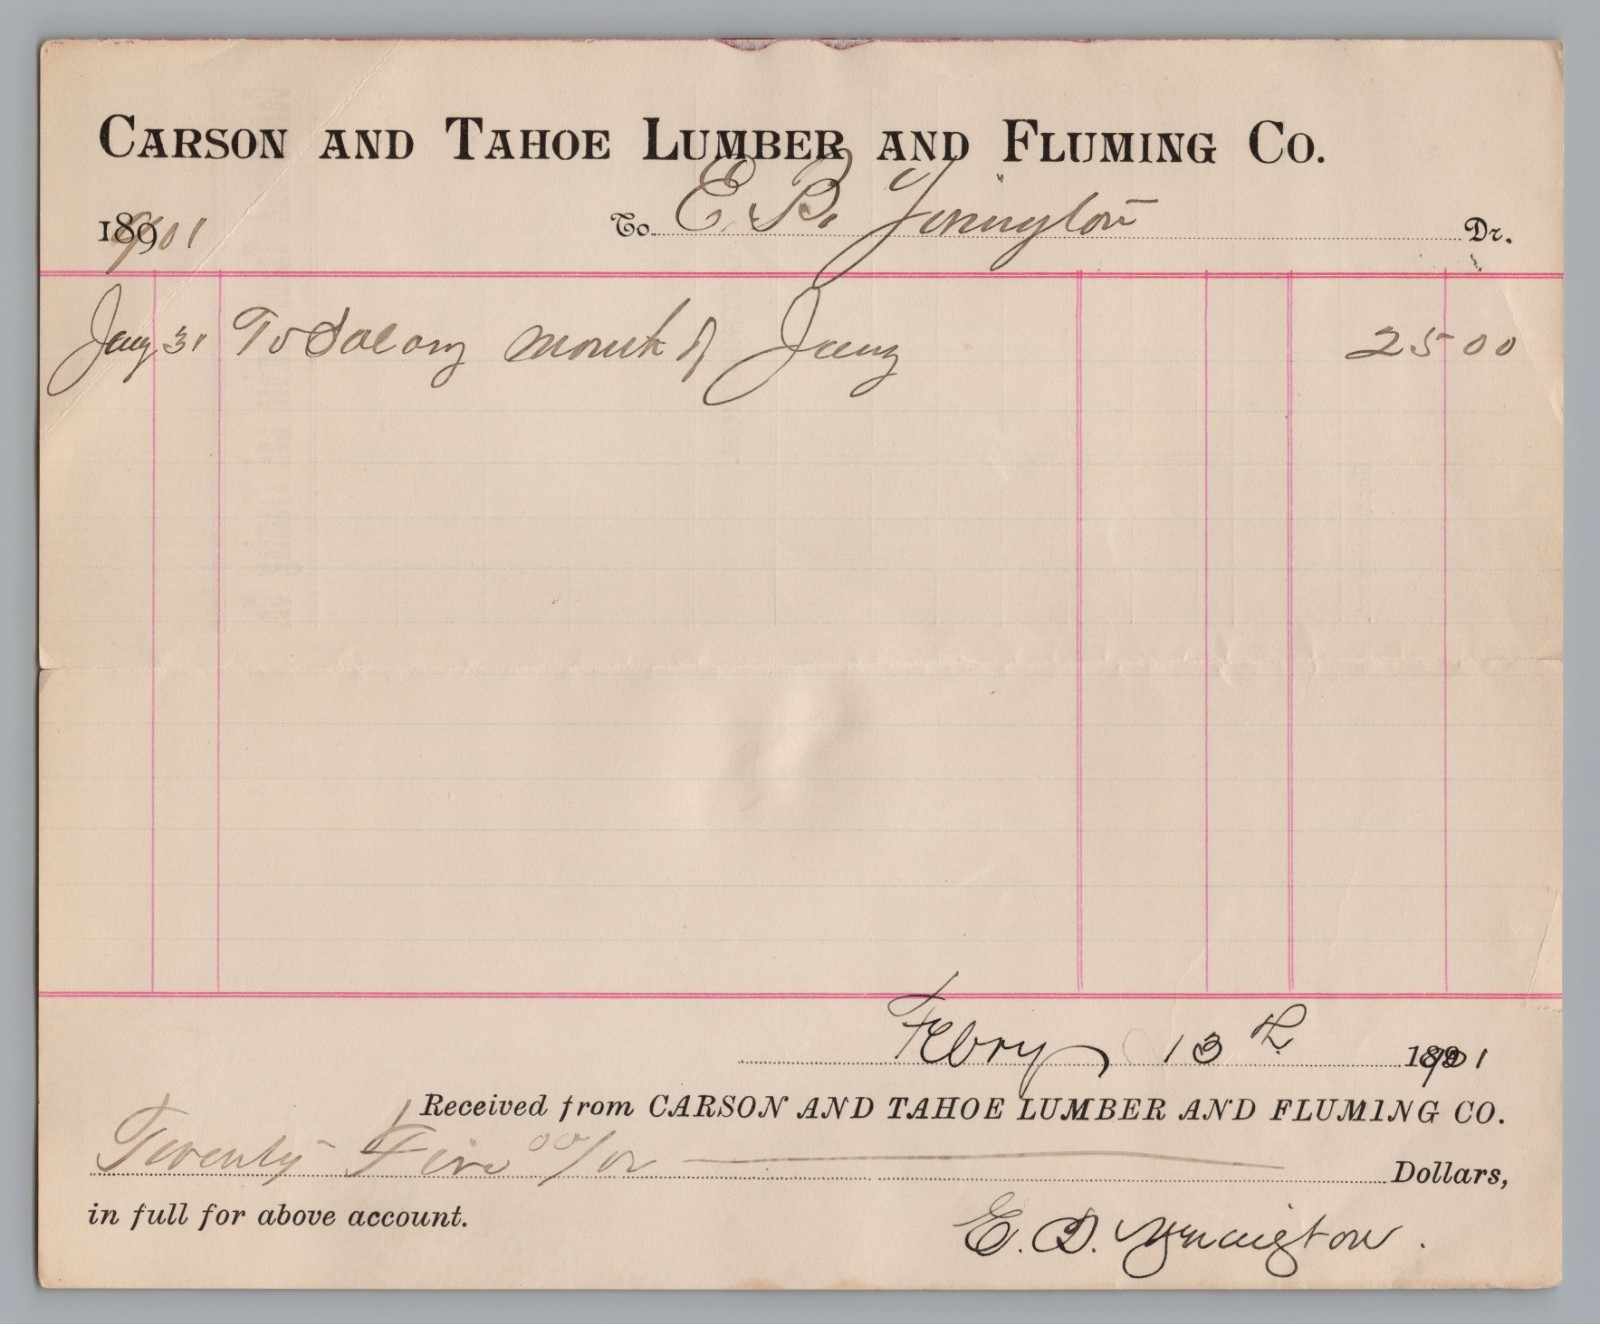 CARSON AND TAHOE LUMBER AND FLUMING CO.
1901 To E. B. Yerington Dr.
Jany 31 To Salary month of Jany 25 00
Febry 13th 1901
Received from CARSON AND TAHOE LUMBER AND FLUMING CO.
Twenty Five 00/00 Dollars,
in full for above account.
E. B. Yerington.